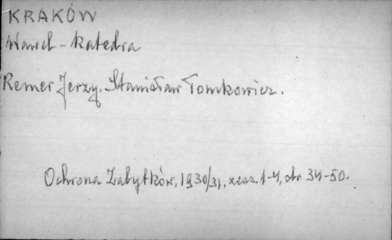 KRAKÓW
Wawel - Katedra
Remer Jerzy. Stanisław Tomkowicz.
Ochrona Zabytków, 1930/31, zesz. 1-4, str. 34-50.